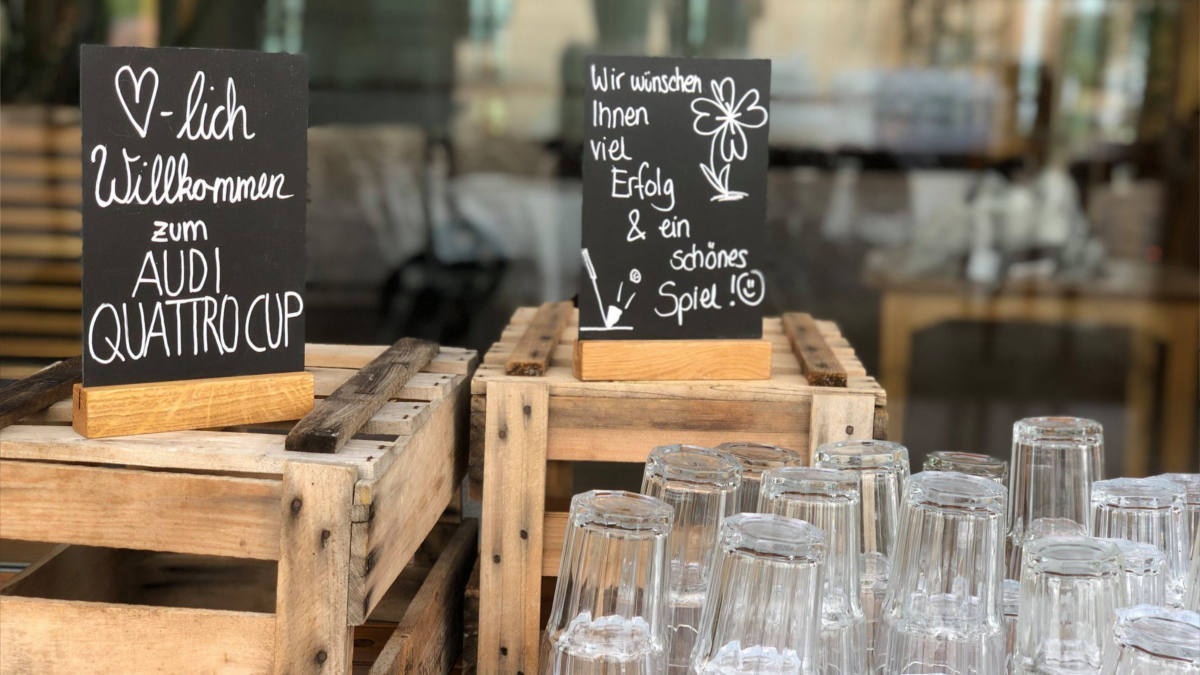 ♡-lich
Willkommen
zum
AUDI
QUATTRO CUP
Wir wünschen
Ihnen
viel
Erfolg
& ein
schönes
Spiel! ☺